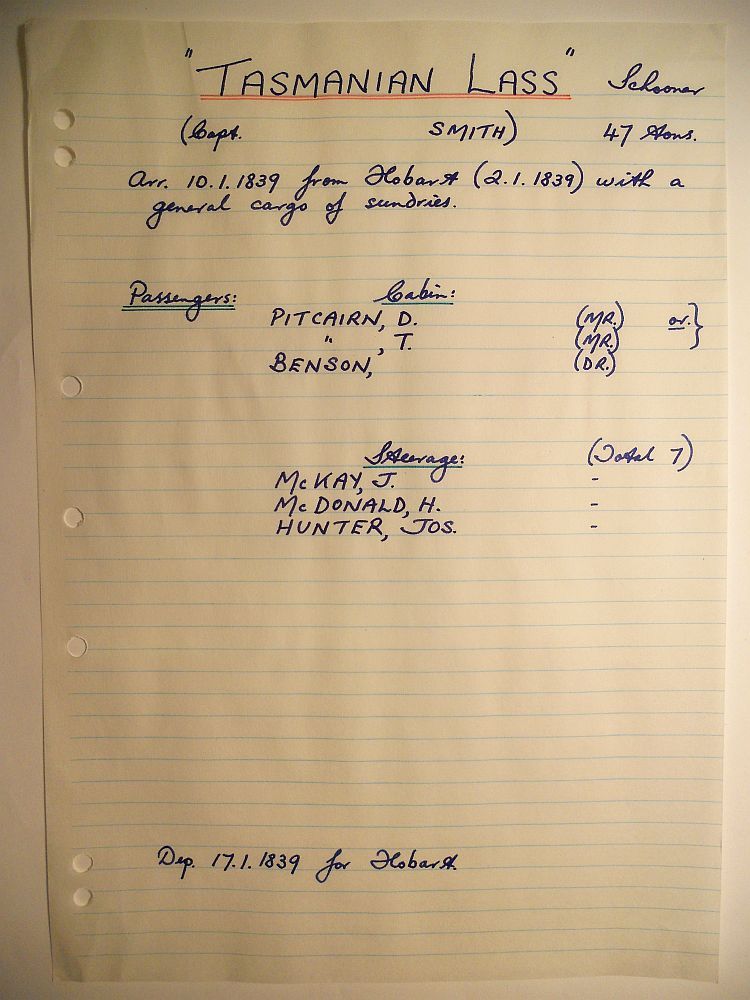 "TASMANIAN LASS" Schooner
(Capt. SMITH) 47 tons.
Arr. 10.1.1839 from Hobart (2.1.1839) with a
general cargo of sundries.
Passengers: Cabin:
PITCAIRN, D. (MR.) or. }
" , T. (MR.)
BENSON, (DR.)
Steerage: (Total 7)
McKAY, J. -
McDONALD, H. -
HUNTER, JOS. -
Dep. 17.1.1839 for Hobart.